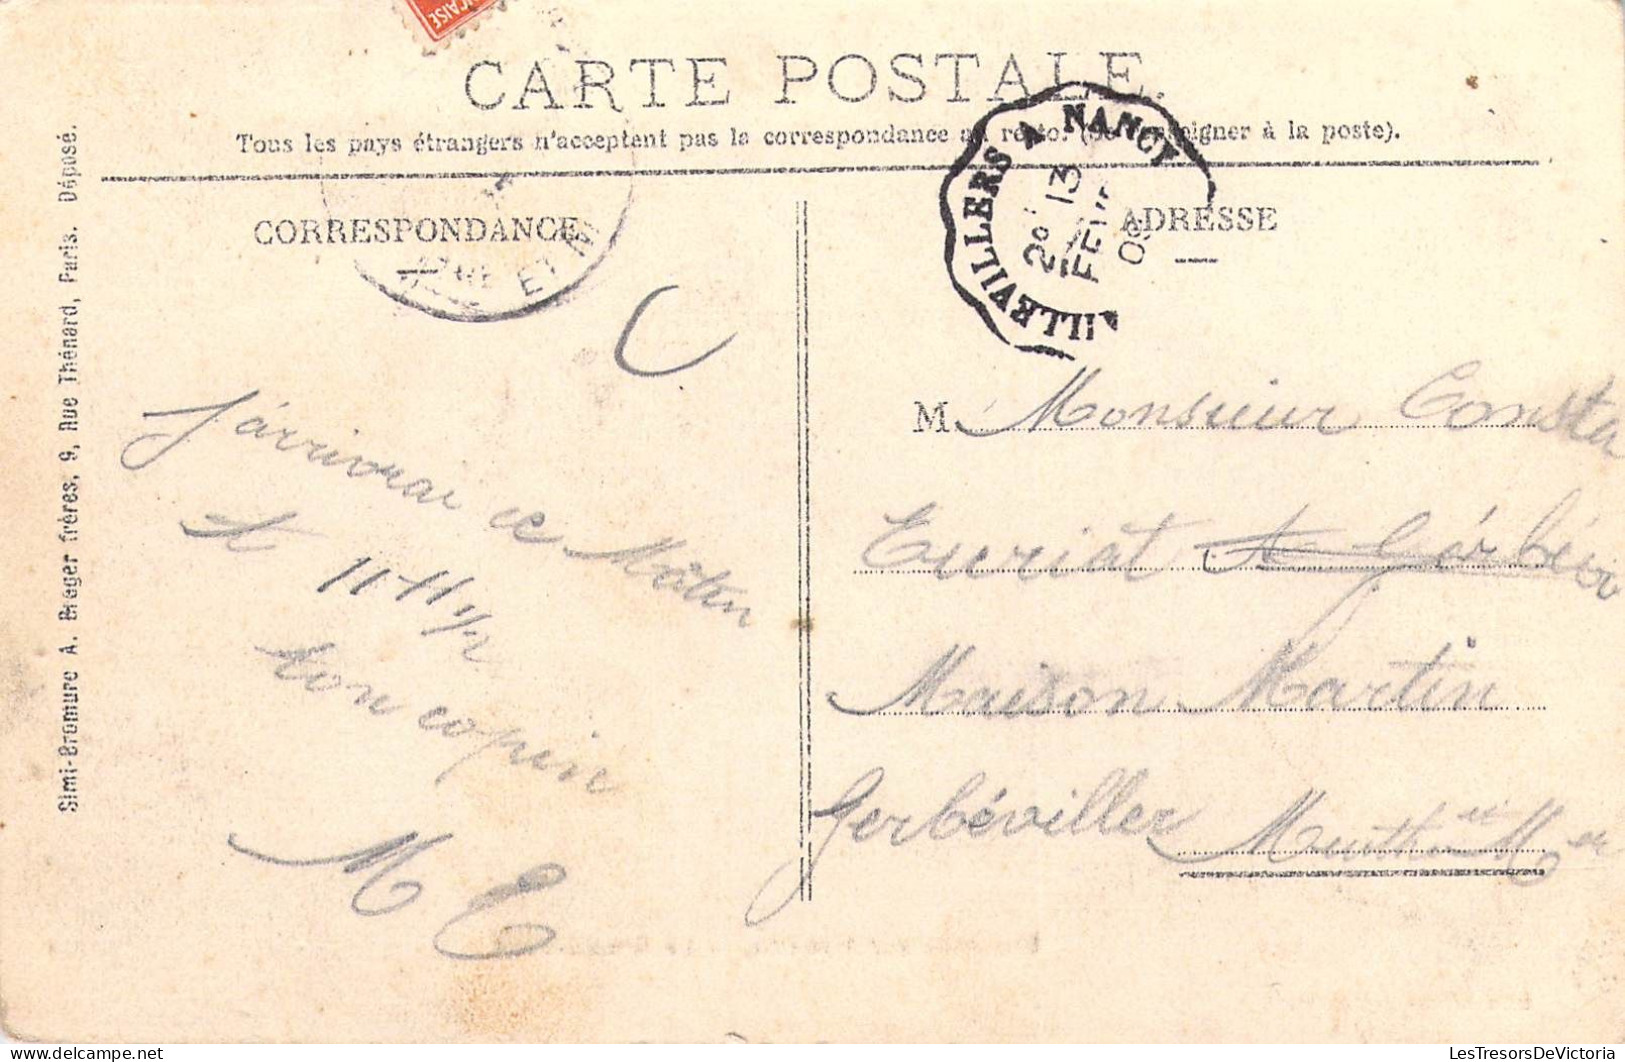 ÇAISE
CARTE POSTALE.
Tous les pays étrangers n'acceptent pas la correspondance au recto. (Se renseigner à la poste).
CORRESPONDANCE
ADRESSE
ILLEVILLERS A NANCY
13
FEVR
09
ET M
Simi-Bromure A. Breger frères, 9, Rue Thénard, Paris. Déposé.
J'arriverai ce Matin
à 11 H ½
ton copin
M E
M. Monsieur Constan
Euriat à Gérbévi
Maison Martin
Gerbéviller Meurthe et M
LesTresorsDeVictoria